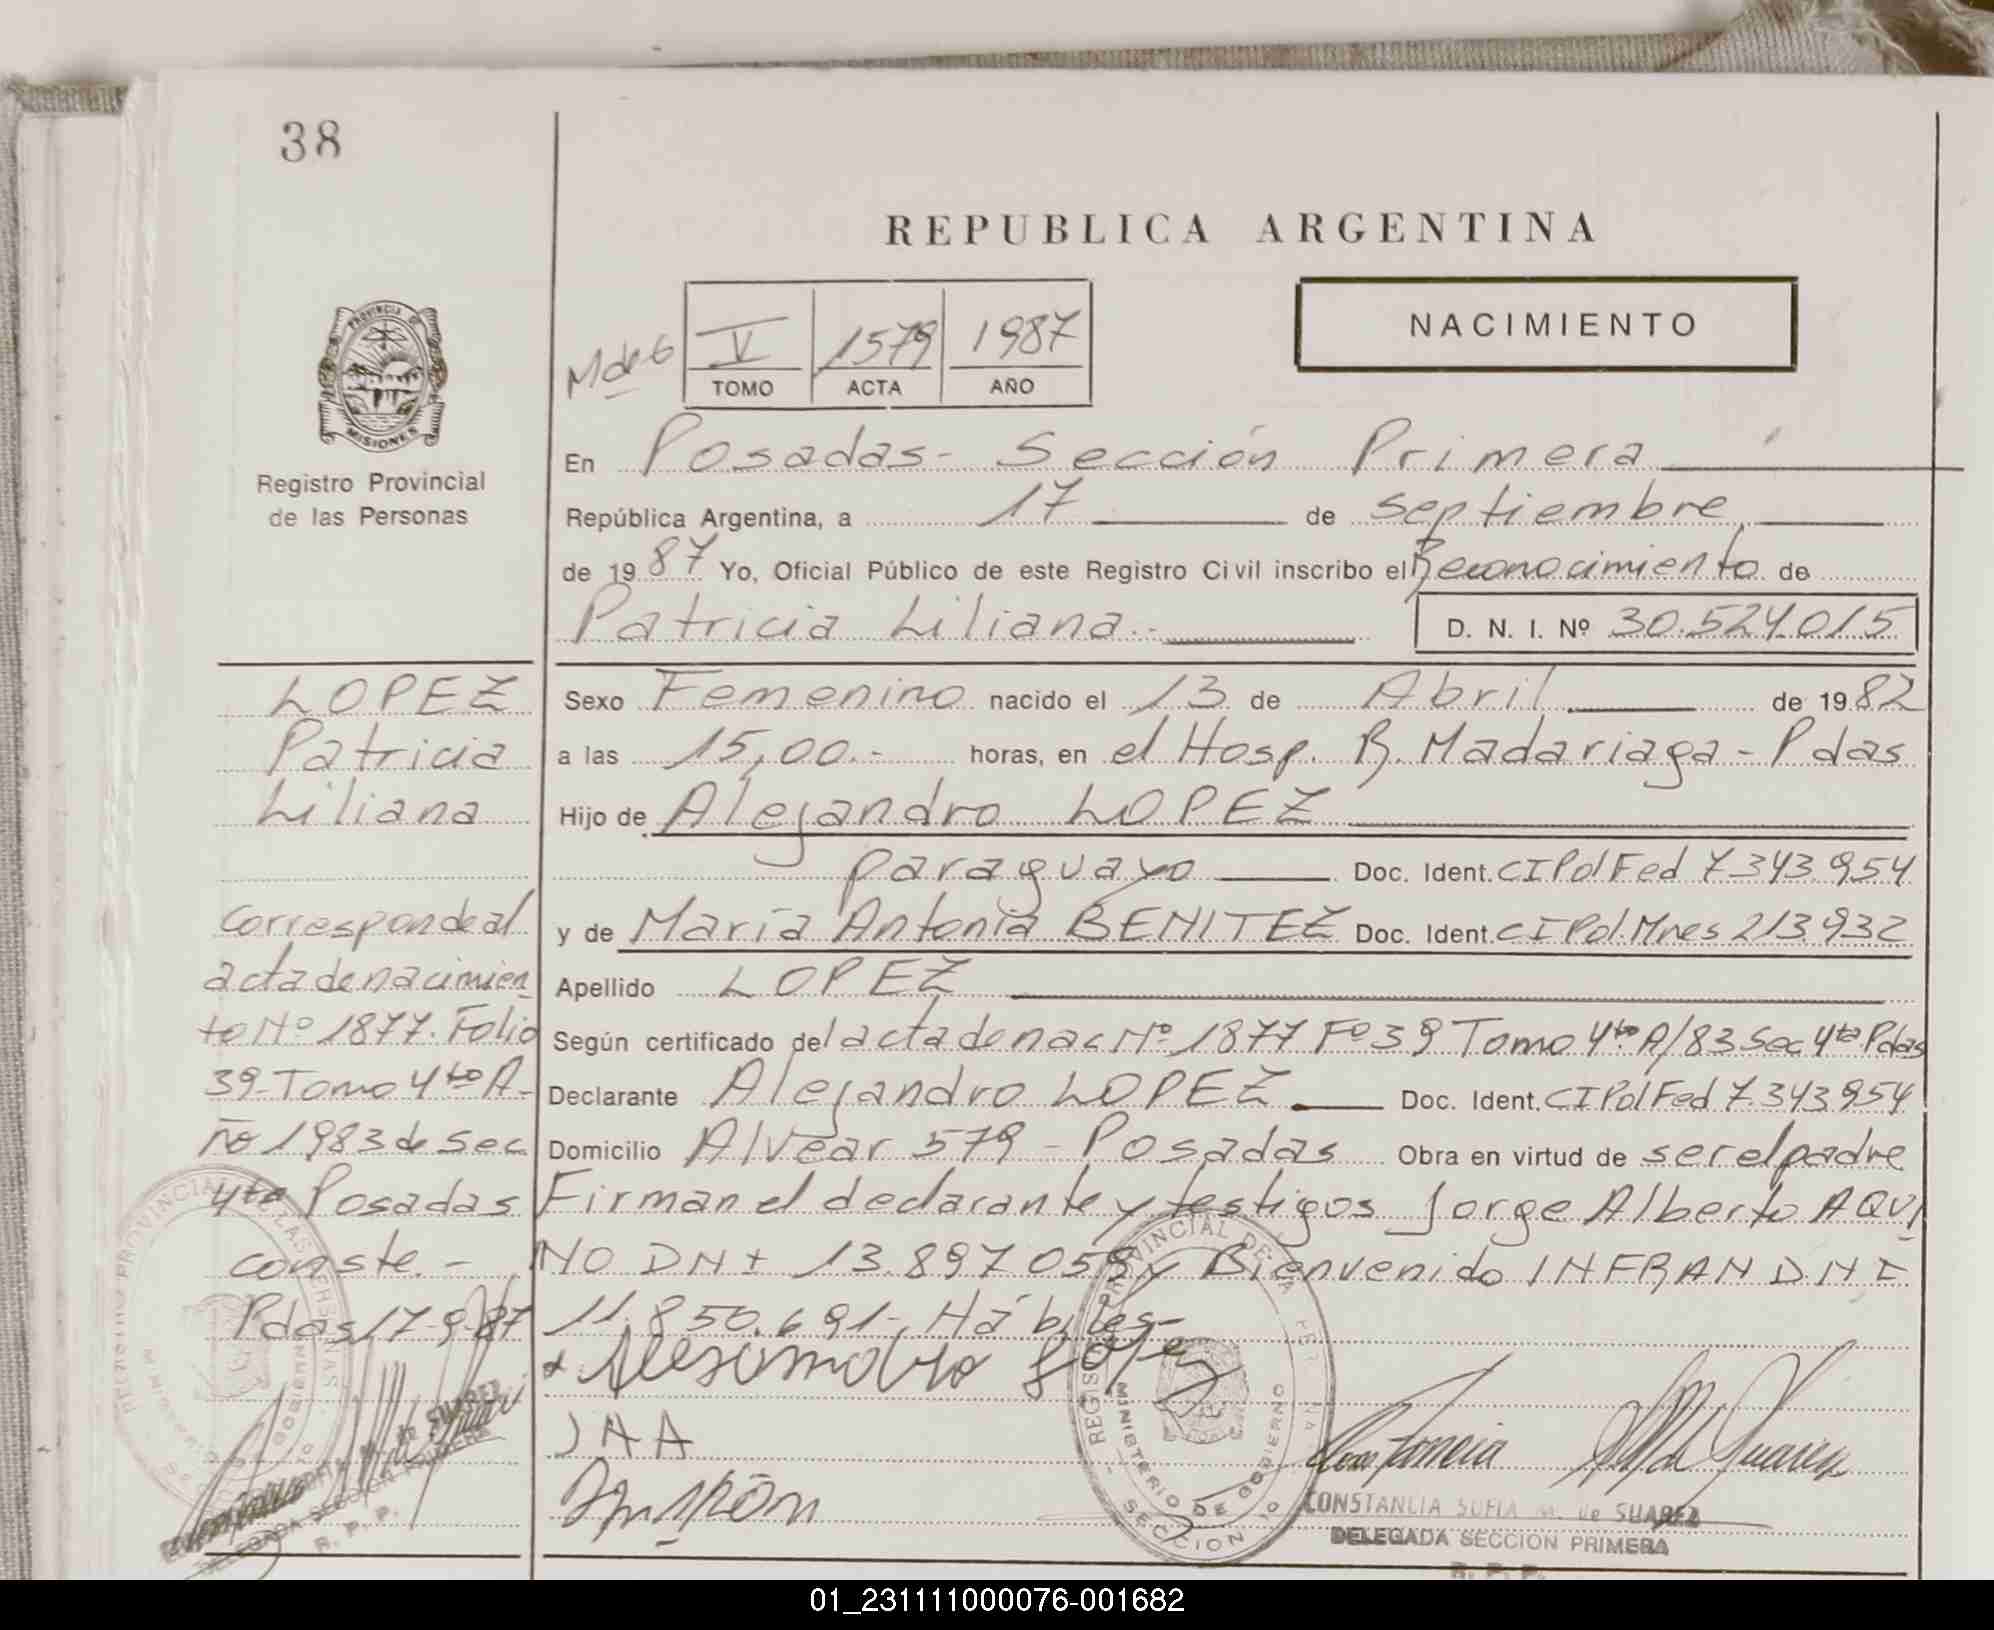 38
REPUBLICA ARGENTINA
NACIMIENTO
V 1579 1987
TOMO ACTA AÑO
PROVINCIA DE
MISIONES
Registro Provincial
de las Personas
En Posadas- Sección Primera
República Argentina, a 17 de septiembre
de 1987 Yo, Oficial Público de este Registro Civil inscribo el Reconocimiento de
Patricia Liliana.- D. N. I. Nº 30.524.015
Sexo Femenino nacido el 13 de Abril de 1982
a las 15,00.- horas, en el Hosp. R. Madariaga - Pdas
Hijo de Alejandro LOPEZ
paraguayo Doc. Ident. CI Pol Fed 7.343.954
y de María Antonia BENITEZ Doc. Ident. CI Pol. Mnes 213.932
Apellido LOPEZ
Según certificado del acta de nac Nº 1877 Fº 39 Tomo 4to A/83 Sec 4ta Pdas
Declarante Alejandro LOPEZ Doc. Ident. CI Pol Fed 7.343.954
Domicilio Alvear 579 - Posadas Obra en virtud de ser el padre
Firman el declarante y testigos Jorge Alberto AQUI
NO DNI 13.897.059 y Bienvenido INFRAN DNI
11.850.691-. Hábiles-
JAA
CONSTANCIA SOFIA M. de SUAREZ
DELEGADA SECCION PRIMERA
R. P. P.
LOPEZ
Patricia
Liliana
Corresponde al
acta de nacimien
to Nº 1877. Folio
39- Tomo 4to A-
ño 1983 de Sec
4ta Posadas
conste.-
Pdas 17-9-87
M. de SUAREZ
DELEGADA SECCION PRIMERA
R. P. P.
REGISTRO PROVINCIAL DE LAS PERSONAS
MINISTERIO DE GOBIERNO
SECCION 1º
01_231111000076-001682